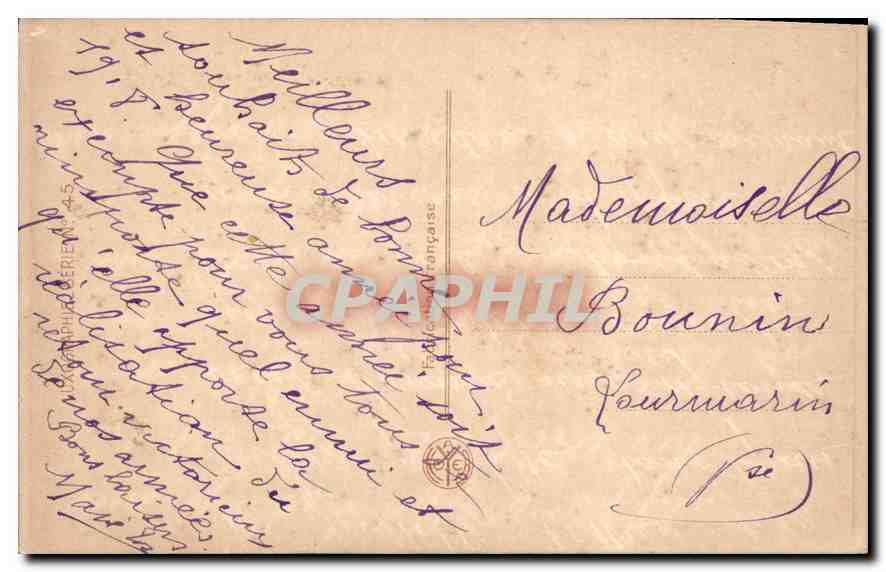 Meilleurs
souhaits de bonjour
et heureuse année
19 8 que cette année soit
exempte pour vous tous
n'importe quel ennui et
qu'elle apporte la
réalisation du
retour victorieux
de nos armées
Bons baisers
Marie
Mademoiselle
Bounin
Lourmarin
Vse
Fabrication Française
SERIE N° 45
CPAPHIL